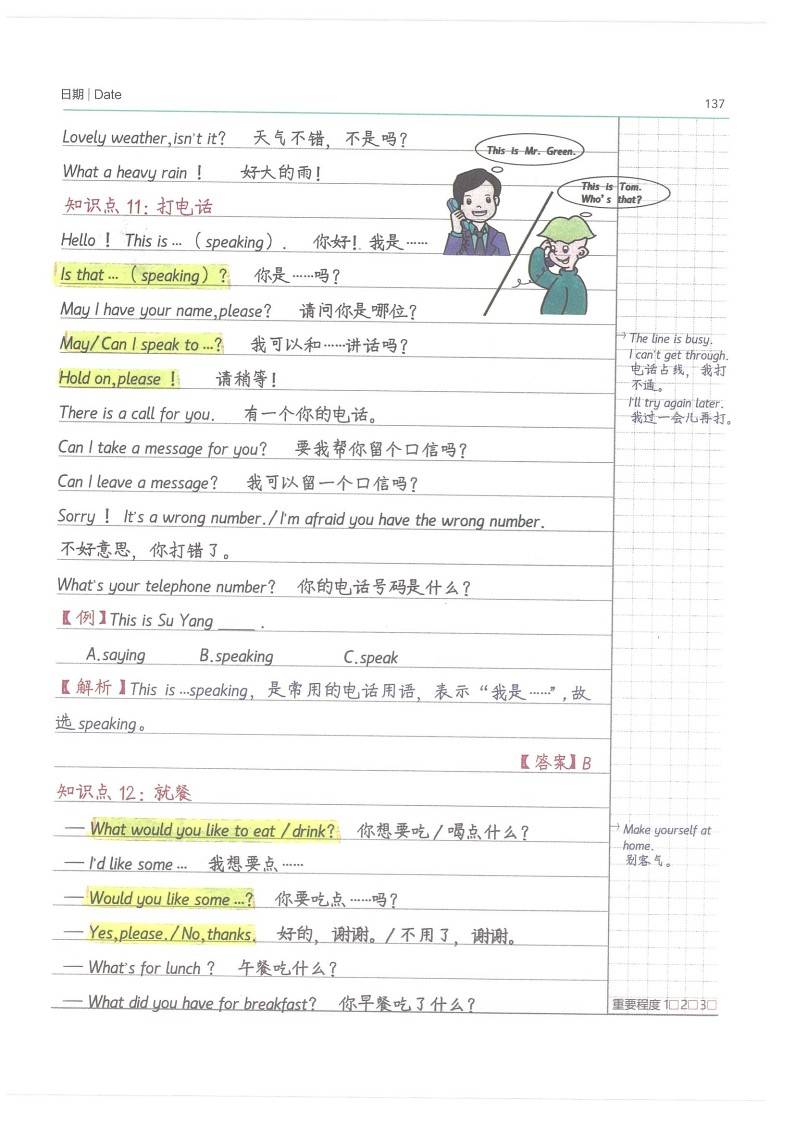 日期 | Date
137
Lovely weather,isn't it? 天气不错，不是吗？
What a heavy rain ! 好大的雨！
This is Mr. Green.
This is Tom.
Who's that?
知识点 11：打电话
Hello ! This is …（speaking）. 你好！我是……
Is that …（speaking）? 你是……吗？
May I have your name,please? 请问你是哪位？
May/Can I speak to …? 我可以和……讲话吗？
Hold on,please ! 请稍等！
There is a call for you. 有一个你的电话。
Can I take a message for you? 要我帮你留个口信吗？
Can I leave a message? 我可以留一个口信吗？
Sorry ! It's a wrong number./I'm afraid you have the wrong number.
不好意思，你打错了。
What's your telephone number? 你的电话号码是什么？
【例】This is Su Yang ____ .
A.saying B.speaking C.speak
【解析】This is …speaking，是常用的电话用语，表示“我是……”,故
选 speaking。
【答案】B
The line is busy.
I can't get through.
电话占线，我打
不通。
I'll try again later.
我过一会儿再打。
知识点 12：就餐
— What would you like to eat/drink? 你想要吃/喝点什么？
— I'd like some … 我想要点……
— Would you like some …? 你要吃点……吗？
— Yes,please./No,thanks. 好的，谢谢。/不用了，谢谢。
— What's for lunch ? 午餐吃什么？
— What did you have for breakfast? 你早餐吃了什么？
Make yourself at
home.
别客气。
重要程度 1□ 2□ 3□